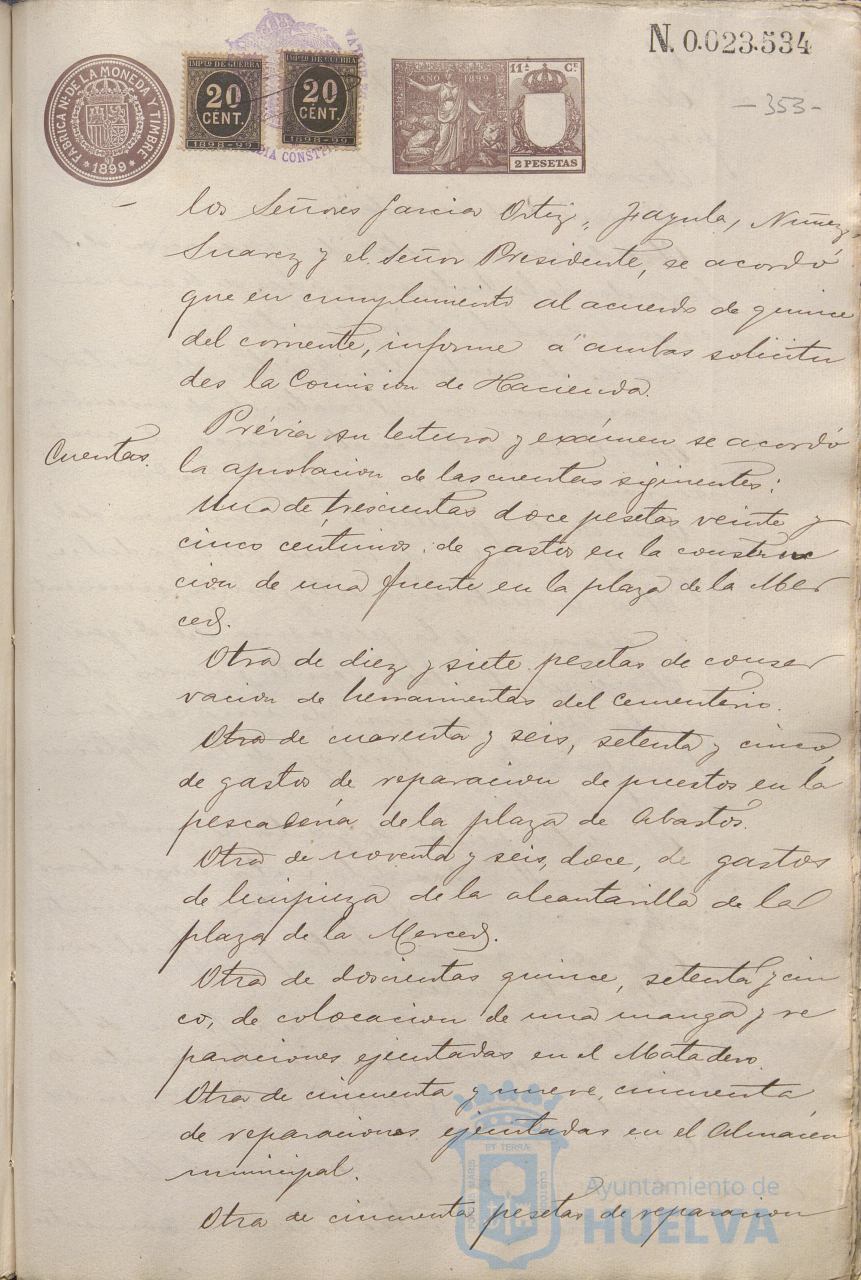 N. 0.023.534
FABRICA Nal DE LA MONEDA Y TIMBRE
* 1899 *
IMPto DE GUERRA
20
CENT.
1898-99
IMPto DE GUERRA
20
CENT.
1898-99
AÑO 1899
11ª CE
2 PESETAS
-353-
los Señores Garcia Ortiz, Jayula, Nuñez,
Suarez y el Señor Presidente, se acordó
que en cumplimiento al acuerdo de quince
del corriente, informe á ambas solicitu
des la Comision de Hacienda.
Cuentas.
Prévia su lectura y exámen se acordó
la aprobacion de las cuentas siguientes:
Una de trescientas doce pesetas veinte y
cinco céntimos, de gastos en la construc
cion de una fuente en la plaza de la Mer
ced.
Otra de diez y siete pesetas de conser
vacion de herramientas del Cementerio.
Otra de cuarenta y seis, setenta y cinco,
de gastos de reparacion de puestos en la
pescaderia de la plaza de Abastos.
Otra de noventa y seis, doce, de gastos
de limpieza de la alcantarilla de la
plaza de la Merced.
Otra de doscientas quince, setenta y cin
co, de colocacion de una manga y re
paraciones ejecutadas en el Matadero.
Otra de cincuenta y nueve, cincuenta
de reparaciones ejecutadas en el Almacén
municipal.
Otra de cincuenta pesetas de reparacion
Ayuntamiento de
HUELVA